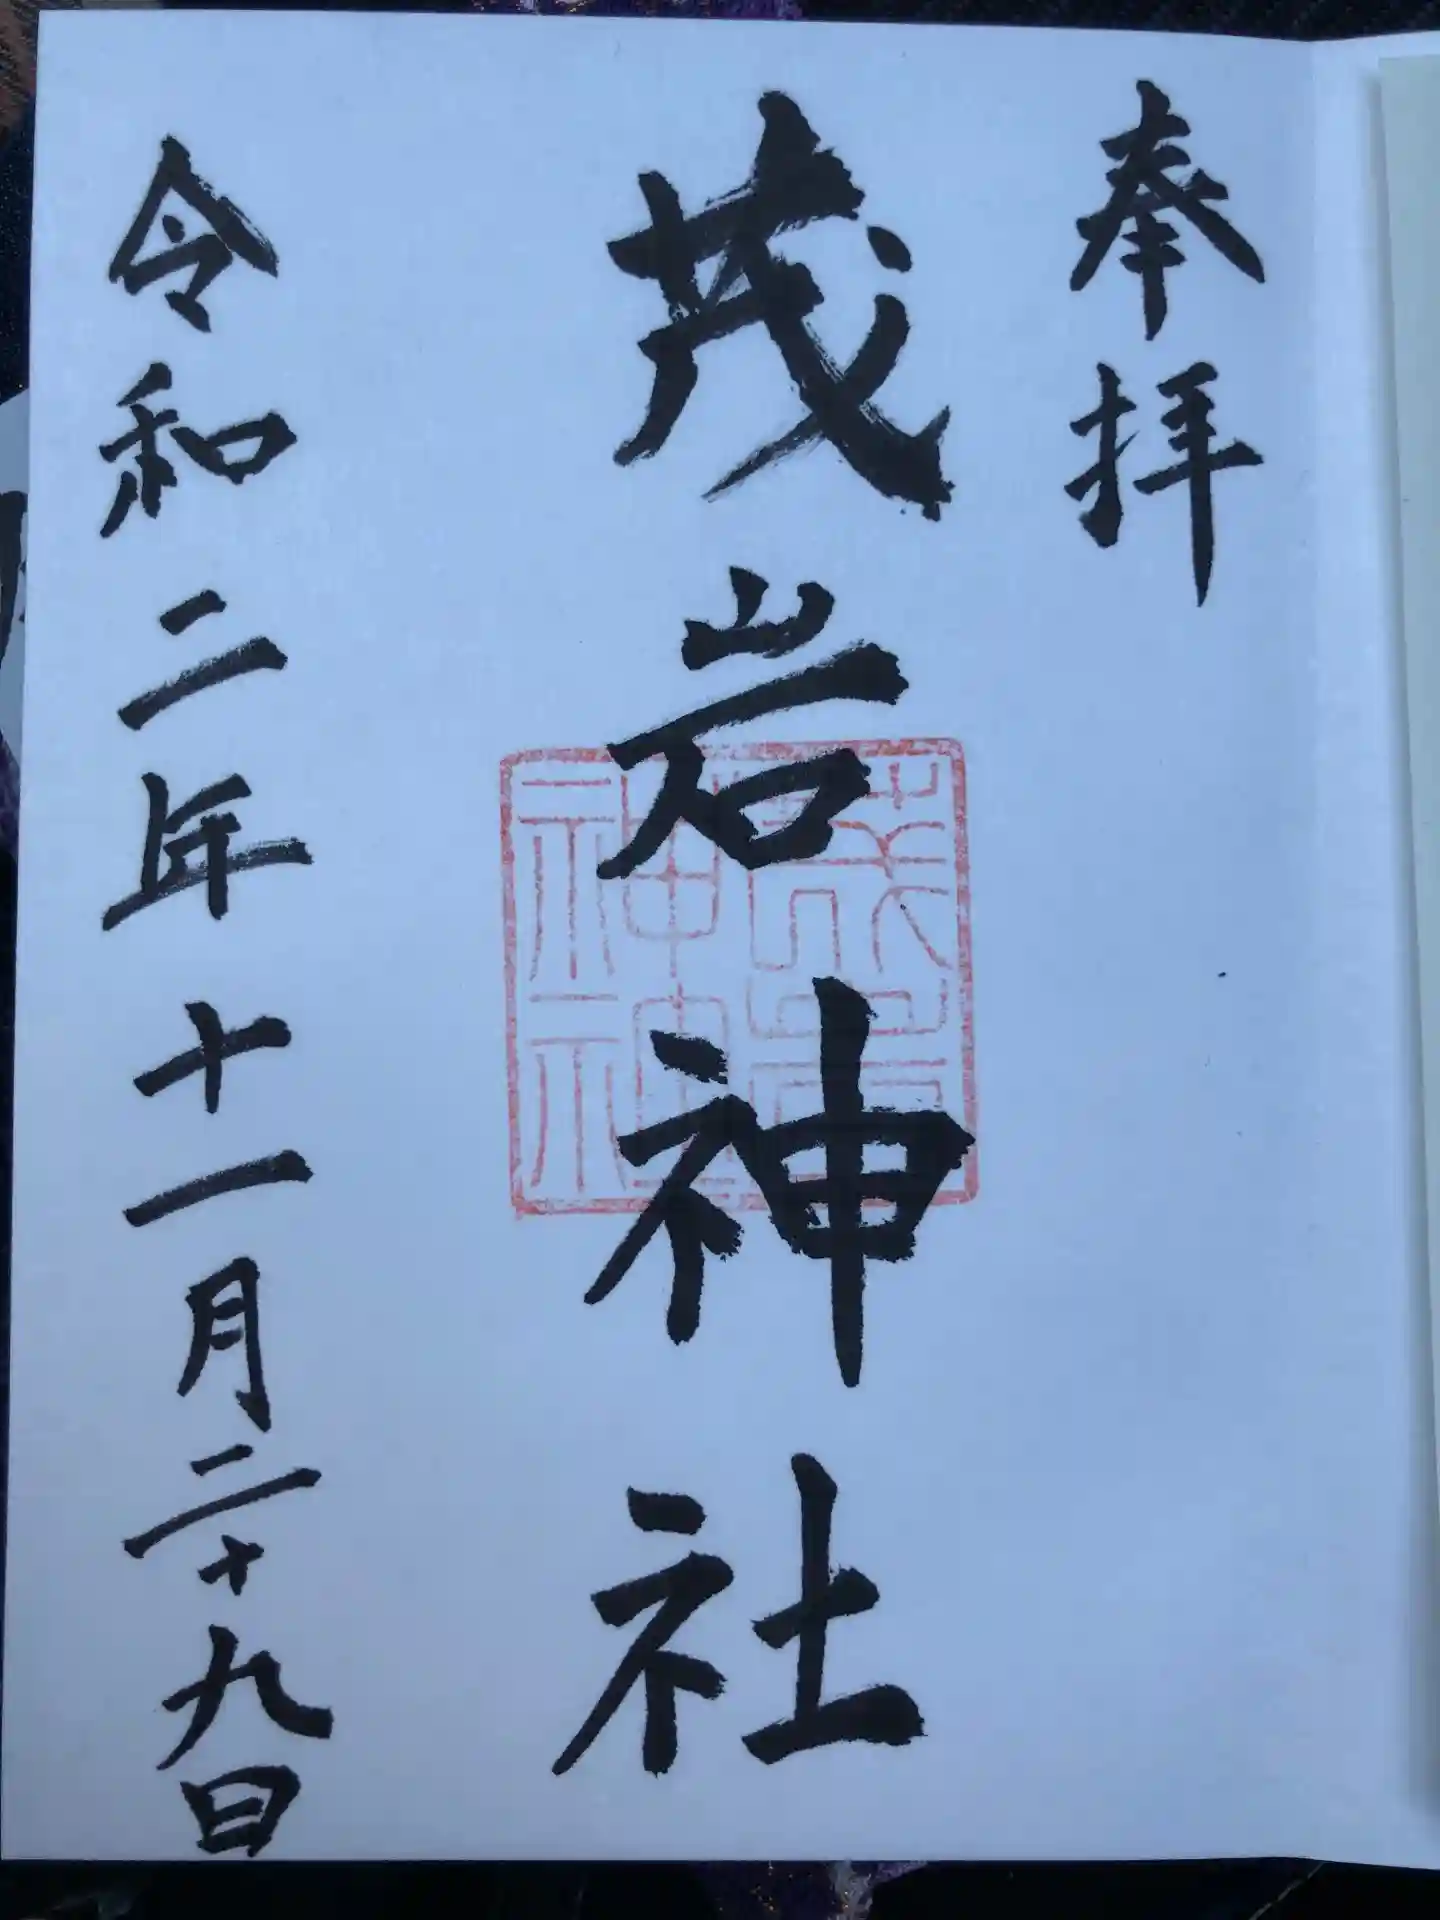 奉拝
茂岩神社
令和二年十一月二十九日